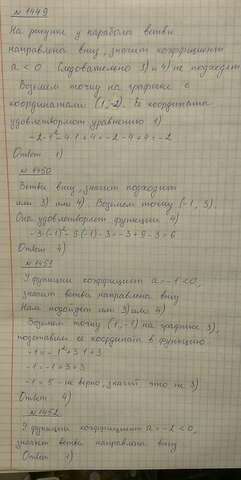 № 1449
На рисунке у параболы ветви
направлена вниз, значит коэффициент
a < 0 Следовательно 3) и 4) не подходят
Возьмем точку на графике с
координатами (1, -2). Её координаты
удовлетворяет уравнению 1)
-2·1²-4·1+4=-2-4+4=-2
Ответ 1)
№ 1450
Ветви вниз, значит подходит
или 3) или 4). Возьмем точку (-1, 3).
Она удовлетворяет функции 4)
-3·(-1)²-9·(-1)-3=-3+9-3=6
Ответ: 4)
№ 1451
У функции коэффициент a = -1 < 0,
значит ветви направлена вниз
Нам подойдет или 3) или 4)
Возьмем точку (1, -1) на графике 3),
подставим ее координаты в функцию
-1=-1²+3·1+3
-1=-1+3+3
-1=5 - не верно, значит это не 3)
Ответ: 4)
№ 1452
У функции коэффициент a = -2 < 0,
значит ветви направлена вниз
Ответ: 1)